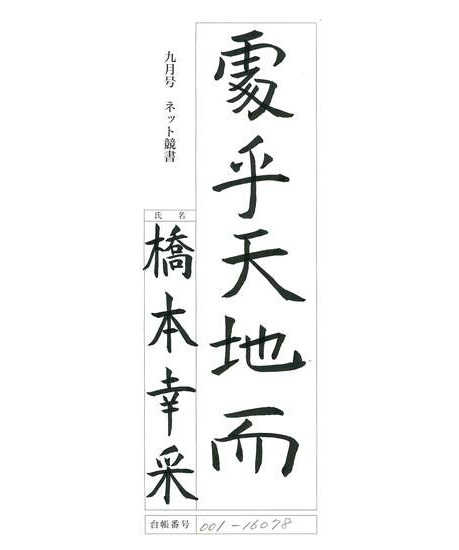 處乎天地而
九月号 ネット競書
氏名
橋本幸采
台帳番号 001-16078